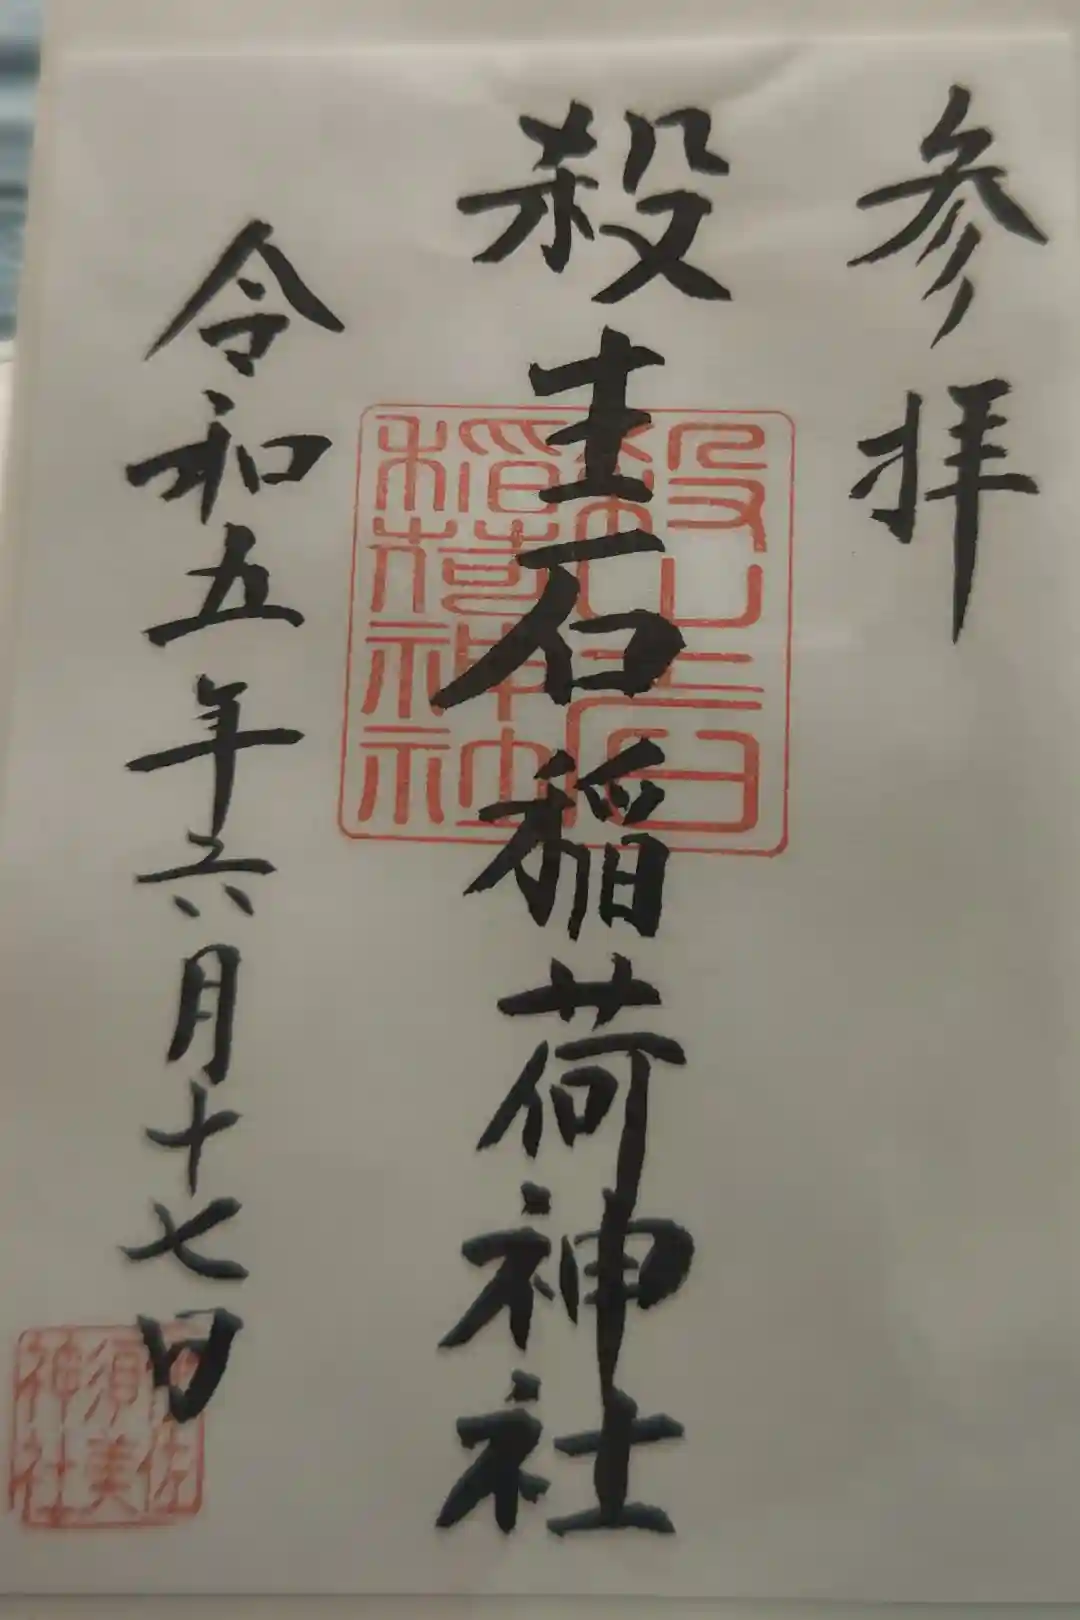 参拝
殺生石稲荷神社
令和五年六月十七日
殺生石
稲荷神社
伊佐
須美
神社